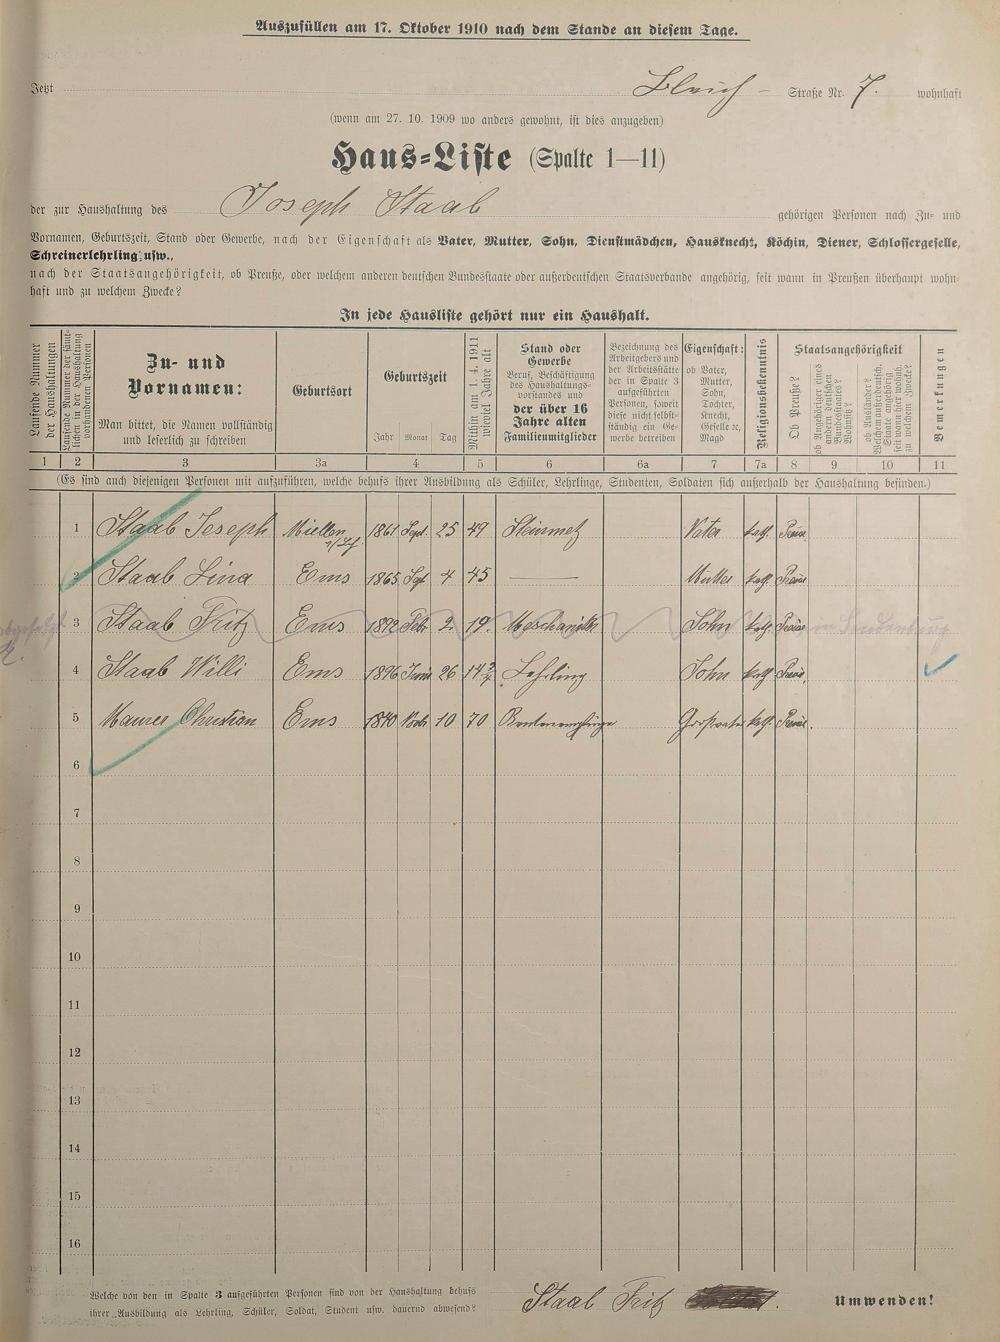 Auszufüllen am 17. Oktober 1910 nach dem Stande an diesem Tage.
Jetzt Bleich - Straße Nr. 7. wohnhaft
(wenn am 27. 10. 1909 wo anders gewohnt, ist dies anzugeben)
Haus-Liste (Spalte 1—11)
der zur Haushaltung des Joseph Staab gehörigen Personen nach Zu- und
Vornamen, Geburtszeit, Stand oder Gewerbe, nach der Eigenschaft als Vater, Mutter, Sohn, Dienstmädchen, Hausknecht, Köchin, Diener, Schlossergeselle,
Schreinerlehrling usw.,
nach der Staatsangehörigkeit, ob Preuße, oder welchem anderen deutschen Bundesstaate oder außerdeutschen Staatsverbande angehörig, seit wann in Preußen überhaupt wohn-
haft und zu welchem Zwecke?
In jede Hausliste gehört nur ein Haushalt.
Laufende Nummer der Haushaltungen
Laufende Nummer der sämt-
lichen in der Haushaltung
vorhandenen Personen
Zu- und
Vornamen:
Man bittet, die Namen vollständig
und leserlich zu schreiben
Geburtsort
Geburtszeit
Jahr Monat Tag
Mithin am 1. 4. 1911
wieviel Jahre alt
Stand oder
Gewerbe
Beruf, Beschäftigung
des Haushaltungs-
vorstandes und
der über 16
Jahre alten
Familienmitglieder
Bezeichnung des
Arbeitgebers und
der Arbeitsstätte
der in Spalte 3
aufgeführten
Personen, soweit
diese nicht selbst-
ständig ein Ge-
werbe betreiben
Eigenschaft:
ob Vater,
Mutter,
Sohn,
Tochter,
Knecht,
Geselle ꝛc,
Magd
Religionsbekenntnis
Staatsangehörigkeit
Ob Preuße?
ob Angehöriger eines
andern deutschen
Bundesstaates?
Wohnsitz?
ob Ausländer?
Welchem außerdeutsch.
Staate angehörig
seit wann hier wohnh.
zu welchem Zwecke?
Bemerkungen
1 2 3 3a 4 5 6 6a 7 7a 8 9 10 11
(Es sind auch diejenigen Personen mit aufzuführen, welche behufs ihrer Ausbildung als Schüler, Lehrlinge, Studenten, Soldaten sich außerhalb der Haushaltung befinden.)
1 Staab Joseph Miellen 1861 Sept. 25 49 Steinmetz Vater kath. Preuße
2 Staab Lina Ems 1865 Spt 4 45 — Mutter kath. Preuße
3 Staab Fritz Ems 1892 Febr 2. 19. Meschaniker Sohn kath. Preuße
4 Staab Willi Ems 1896 Juni 26 14 Lehrling Sohn kath. Preuße
5 Maurer Christian Ems 1840 10 70 Rentenempfänger Großvater kath. Preuße
6
7
8
9
10
11
12
13
14
15
16
Welche von den in Spalte 3 aufgeführten Personen sind von der Haushaltung behufs
ihrer Ausbildung als Lehrling, Schüler, Soldat, Student usw. dauernd abwesend?
Staab Fritz
Umwenden!